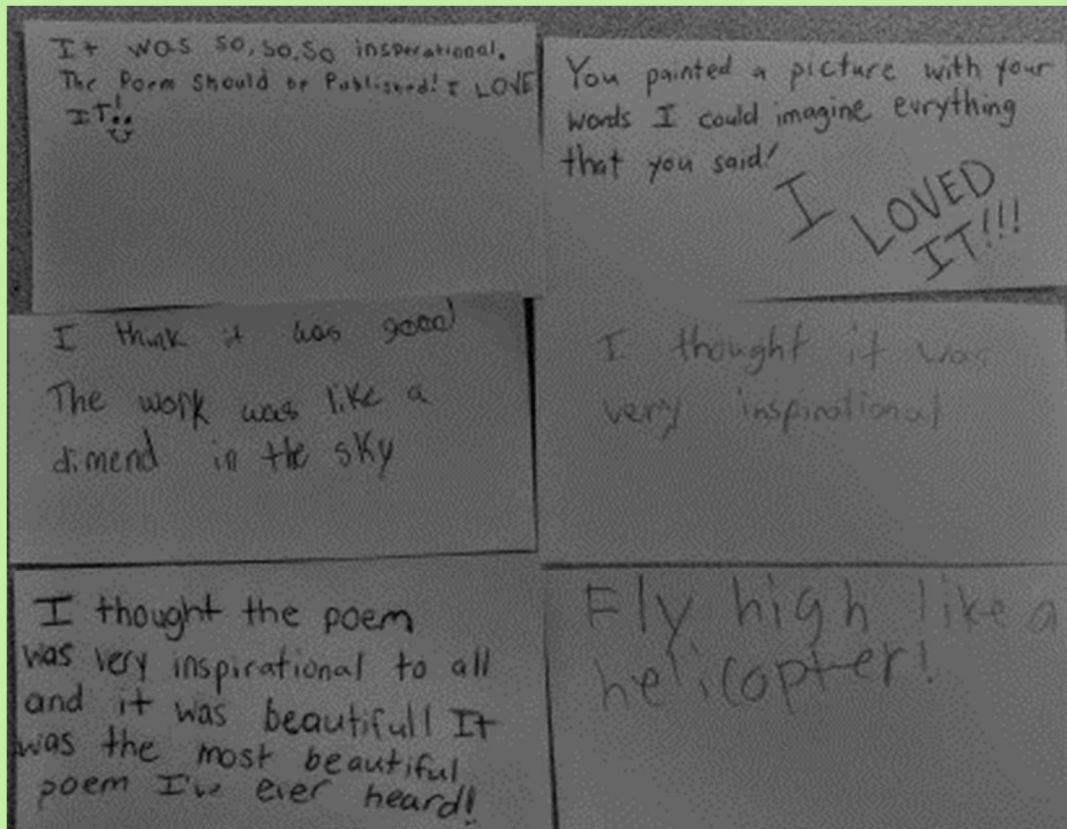 It was so, so, so insperational.
The Poem Should be Published! I LOVE
IT!!
You painted a picture with your
words I could imagine evrything
that you said!
I LOVED
IT!!!
I think it was good
The work was like a
dimend in the sky
I thought it was
very inspirational
I thought the poem
was very inspirational to all
and it was beautifull It
was the most beautiful
poem I've ever heard!
Fly high like a
helicopter!